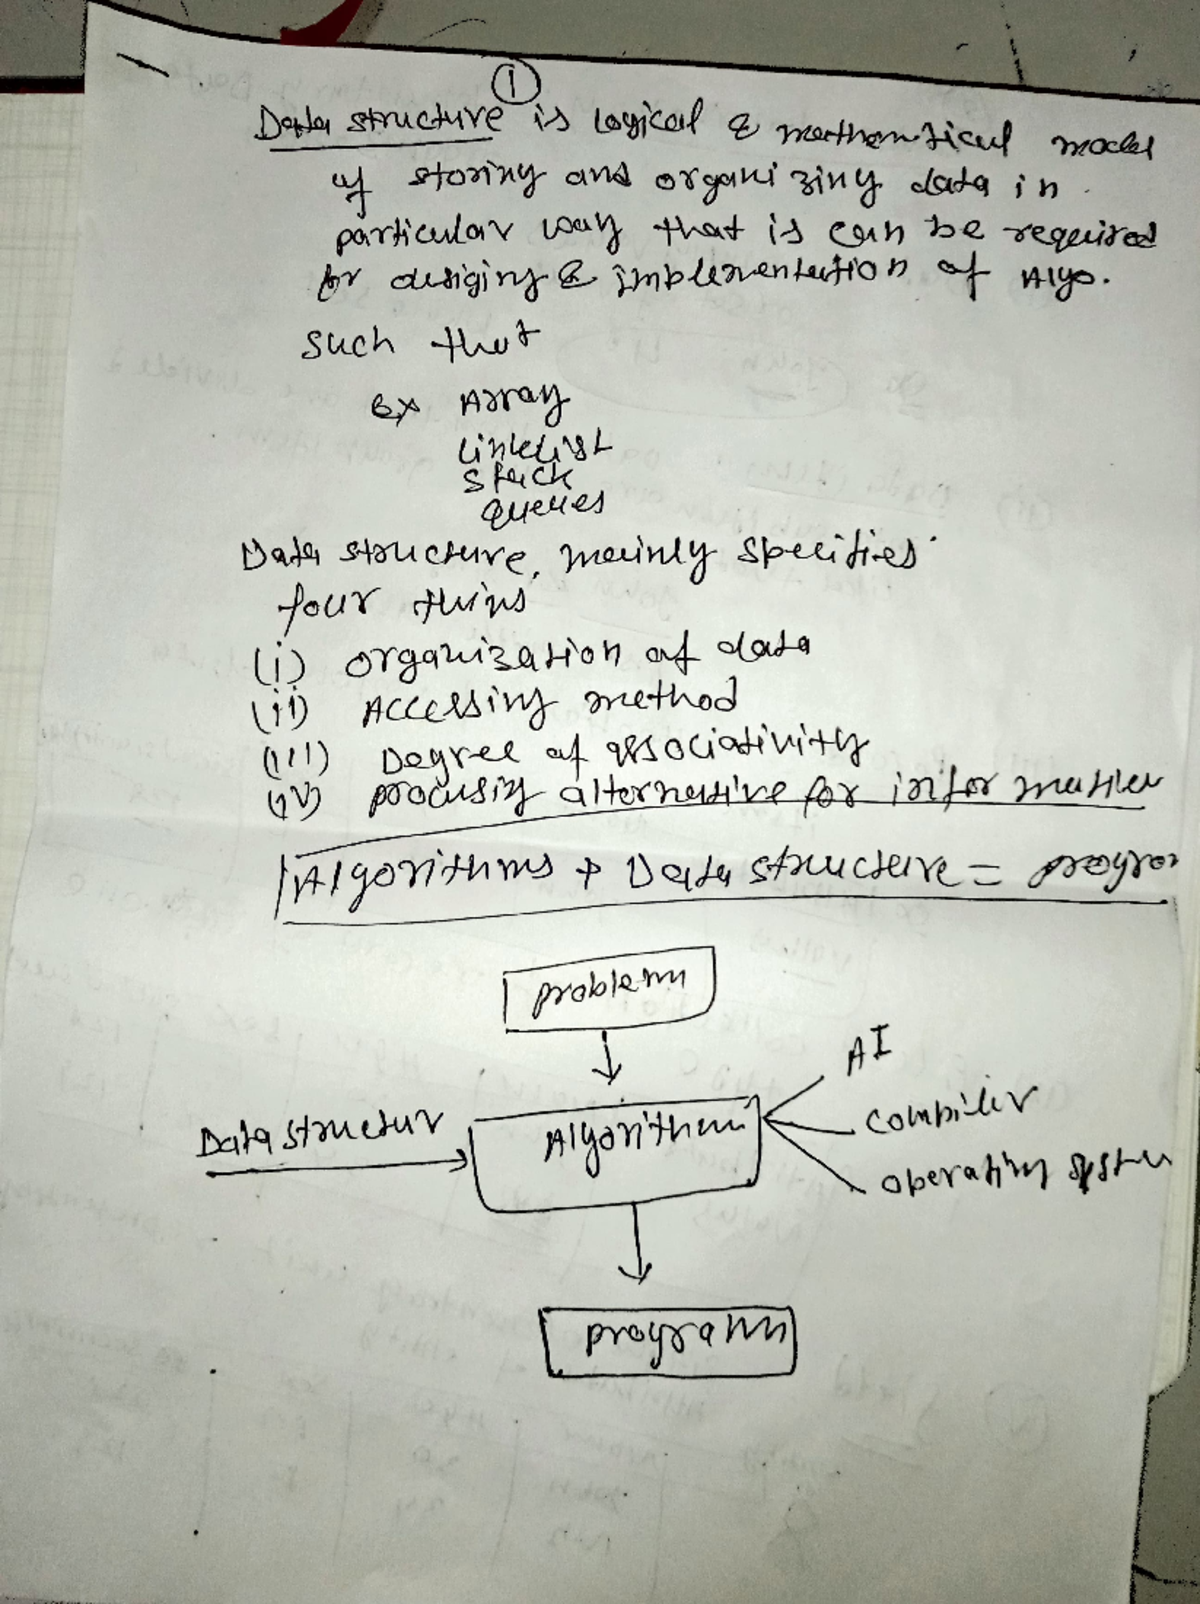 1
Data structure is logical & mathematical model
of storing and organizing data in
particular way that is can be required
for desiging & implementation of Algo.
such that
Ex Array
linklist
stack
queues
Data structure, mainly specifies
four thins
(i) organization of data
(ii) Accessing method
(iii) Degree of associativity
(iv) procusing alternative for information
Algorithms + Data structure = progra
problem
AI
Data structur
Algorithm
compiler
operating system
program